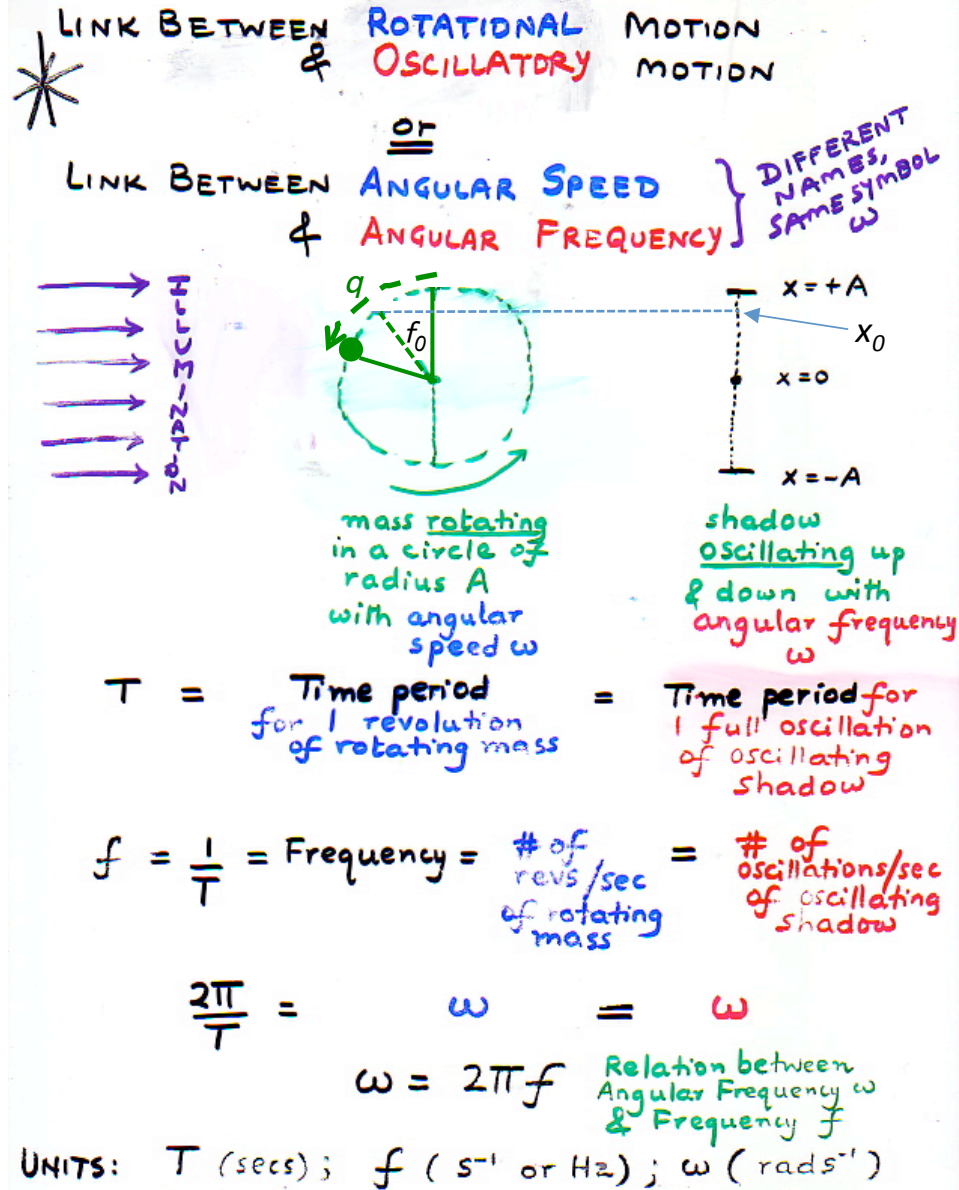 LINK BETWEEN ROTATIONAL MOTION
& OSCILLATORY MOTION
or
LINK BETWEEN ANGULAR SPEED
& ANGULAR FREQUENCY
DIFFERENT
NAMES,
SAME SYMBOL
ω
ILLUMINATION
q
f₀
x=+A
x₀
x=0
x=-A
mass rotating
in a circle of
radius A
with angular
speed ω
shadow
oscillating up
& down with
angular frequency
ω
T = Time period = Time period for
for 1 revolution
of rotating mass
1 full oscillation
of oscillating
shadow
f = 1/T = Frequency = # of
revs/sec
of rotating
mass
= # of
oscillations/sec
of oscillating
shadow
2π/T = ω = ω
ω = 2πf
Relation between
Angular Frequency ω
& Frequency f
UNITS: T (secs); f (s⁻¹ or Hz); ω (rads⁻¹)